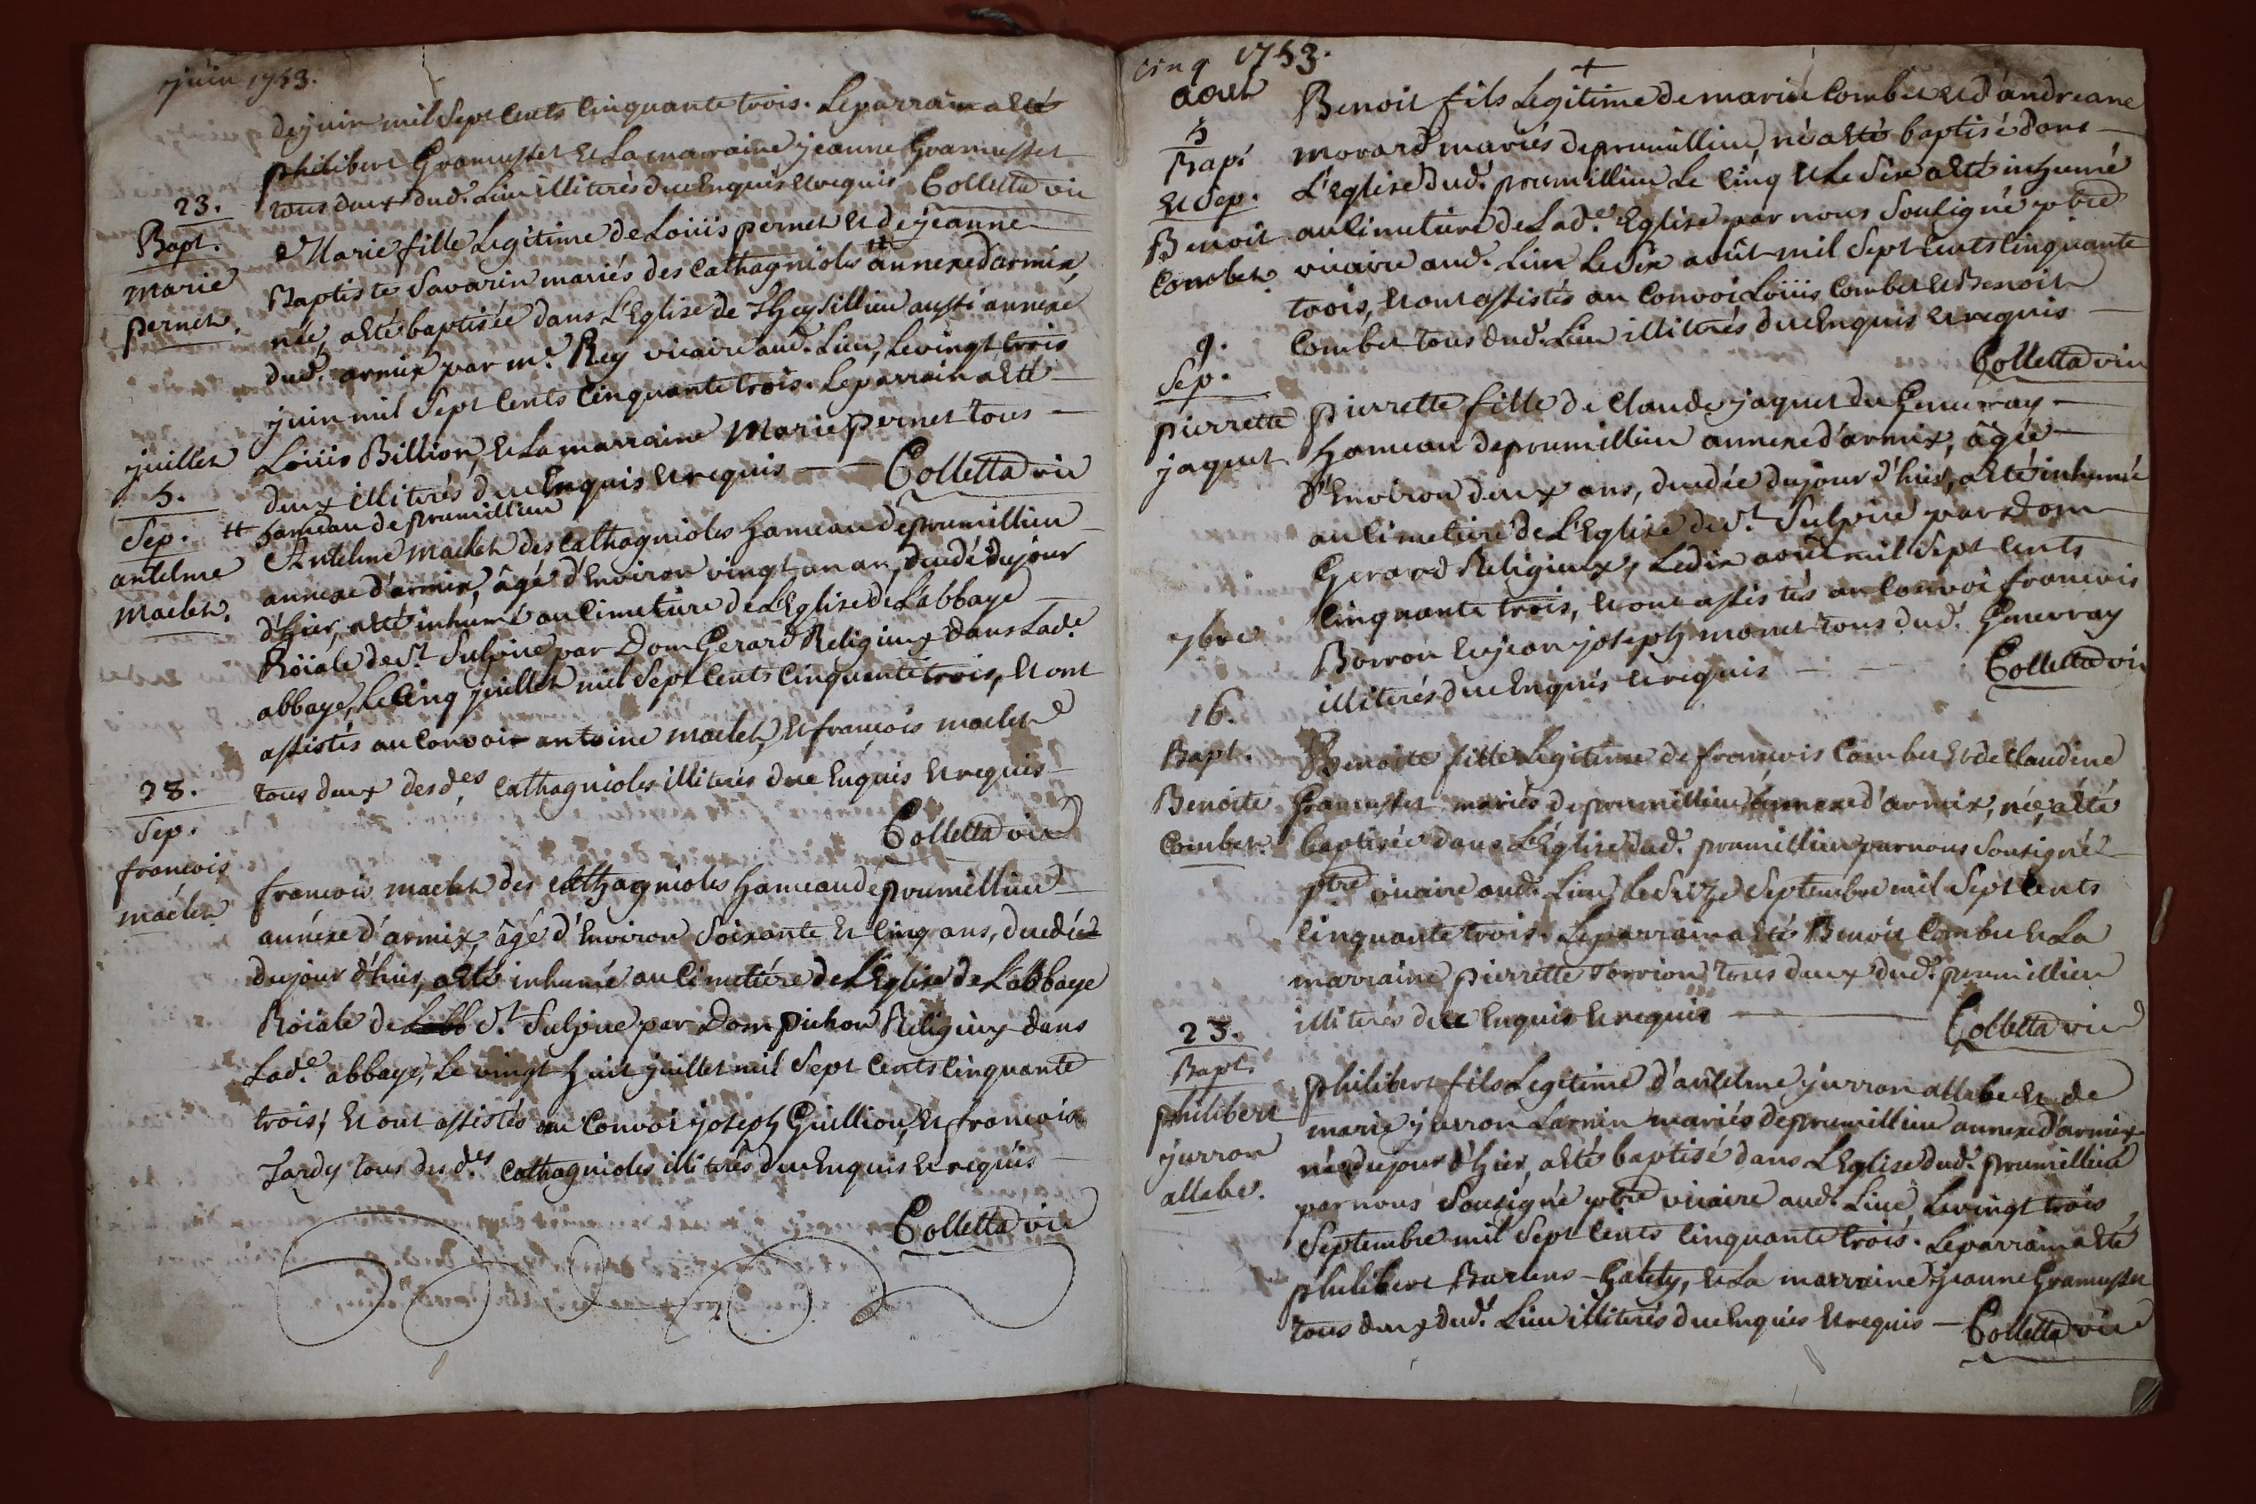 juin 1753.
de juin mil Sept Cents Cinquante trois. Le parrain a Eté
philibert Gramusset et La marraine jeanne Gramusset
tous deux dud. Lieu illiterés due Enquis et requis Colletta vic
23.
Bapt.
marie
pernet.
Marie fille Legitime de Loüis pernet et de jeanne
Baptiste Savarin mariés des Cathagnioles # annexe d'armix,
née, a Eté baptisée dans L'Eglise de Theysillieu aussi annexe
dud. armix par mr. Rey vicaire aud. Lieu, Le vingt trois
juin mil Sept Cents Cinquante trois. Le parrain a Eté
Loüis Billion, et La marraine Marie pernet tous
deux illiterés due Enquis et requis — Colletta vic
# hameau de prumillieu
juillet
5.
Sep.
antelme
maclet.
Antelme maclet des Cathagnioles hameau de prumillieu
annexe d'armix, âgé d'Environ vingt un an, decedé du jour
d'hier, a Eté inhumé au Cimetiére de L'Eglise de L'abbaye
Roïale de St. Sulpice par Dom Gerard Religieux dans Lad.e
abbaye, Le Cinq juillet mil Sept Cents Cinquante trois, et ont
assistés au Convoi antoine maclet, et françois maclet
tous deux desd.es Cathagnioles illiterés due Enquis et requis
Colletta vic
28.
Sep.
francois
maclet
francois maclet des Cathagnioles hameau de prumillieu
annexe d'armix, âgé d'Environ Soixante et Cinq ans, decedé
du jour d'hier, a Eté inhumé au Cimetiére de L'Eglise de L'abbaye
Roïale de Labb St. Sulpice par Dom pichon Religieux dans
Lad.e abbaye, Le vingt huit juillet mil Sept Cents Cinquante
trois; et ont assistés au Convoi joseph Guillion, et francois
Tardy tous desd.es Cathagnioles illiterés due Enquis et requis
Colletta vic
cinq 1753.
aout
5
Bapt
et Sep.
Benoit
Combet.
Benoit fils Legitime de marie Combet et d'andreane
morard mariés de prumillieu, né a Eté baptisé dans
L'Eglise dud. prumillieu Le Cinq et Le Six a Eté inhumé
au Cimetiére de Lad.e Eglise par nous Soussigné ptre
vicaire aud. Lieu Le Six août mil Sept Cents Cinquante
trois, et ont assistés au Convoi Loüis Combet et Benoit
Combet tous dud. Lieu illiterés due Enquis et requis
Colletta vic
9.
Sep.
pierrette
jaquet
pierrette fille de Claude jaquet du Genevray
hameau de prumillieu annexe d'armix, âgée
d'Environ deux ans, decedée du jour d'hier, a Eté inhumée
au Cimetiére de L'Eglise de St. Sulpice par Dom
Gerard Religieux, Le dix août mil Sept Cents
Cinquante trois, et ont assistés au Convoi francois
Borron et jean joseph monet tous dud. Genevray
illiterés due Enquis et requis — Colletta vic
7bre
16.
Bapt.
Benoite
Combet.
Benoite fille Legitime de francois Combet et de Claudine
Gramusset mariés de prumillieu annexe d'armix, née, a Eté
baptisée dans L'Eglise dud. prumillieu par nous Soussigné
ptre vicaire aud. Lieu, Le Seize Septembre mil Sept Cents
Cinquante trois. Le parrain a Eté Benoit Combet et La
marraine pierrette tous deux dud. prumillieu
illiterés due Enquis et requis — Colletta vic
23.
Bapt.
philibert
jurron
allabe.
philibert fils Legitime d'antelme jurron allabe et de
marie jurron Larnin mariés de prumillieu annexe d'armix
né du jour d'hier, a Eté baptisé dans L'Eglise dud. prumillieu
par nous Soussigné ptre vicaire aud. Lieu Le vingt trois
Septembre mil Sept Cents Cinquante trois. Le parrain a Eté
philibert et La marraine jeanne Gramusset
tous deux dud. Lieu illiterés due Enquis et requis — Colletta vic